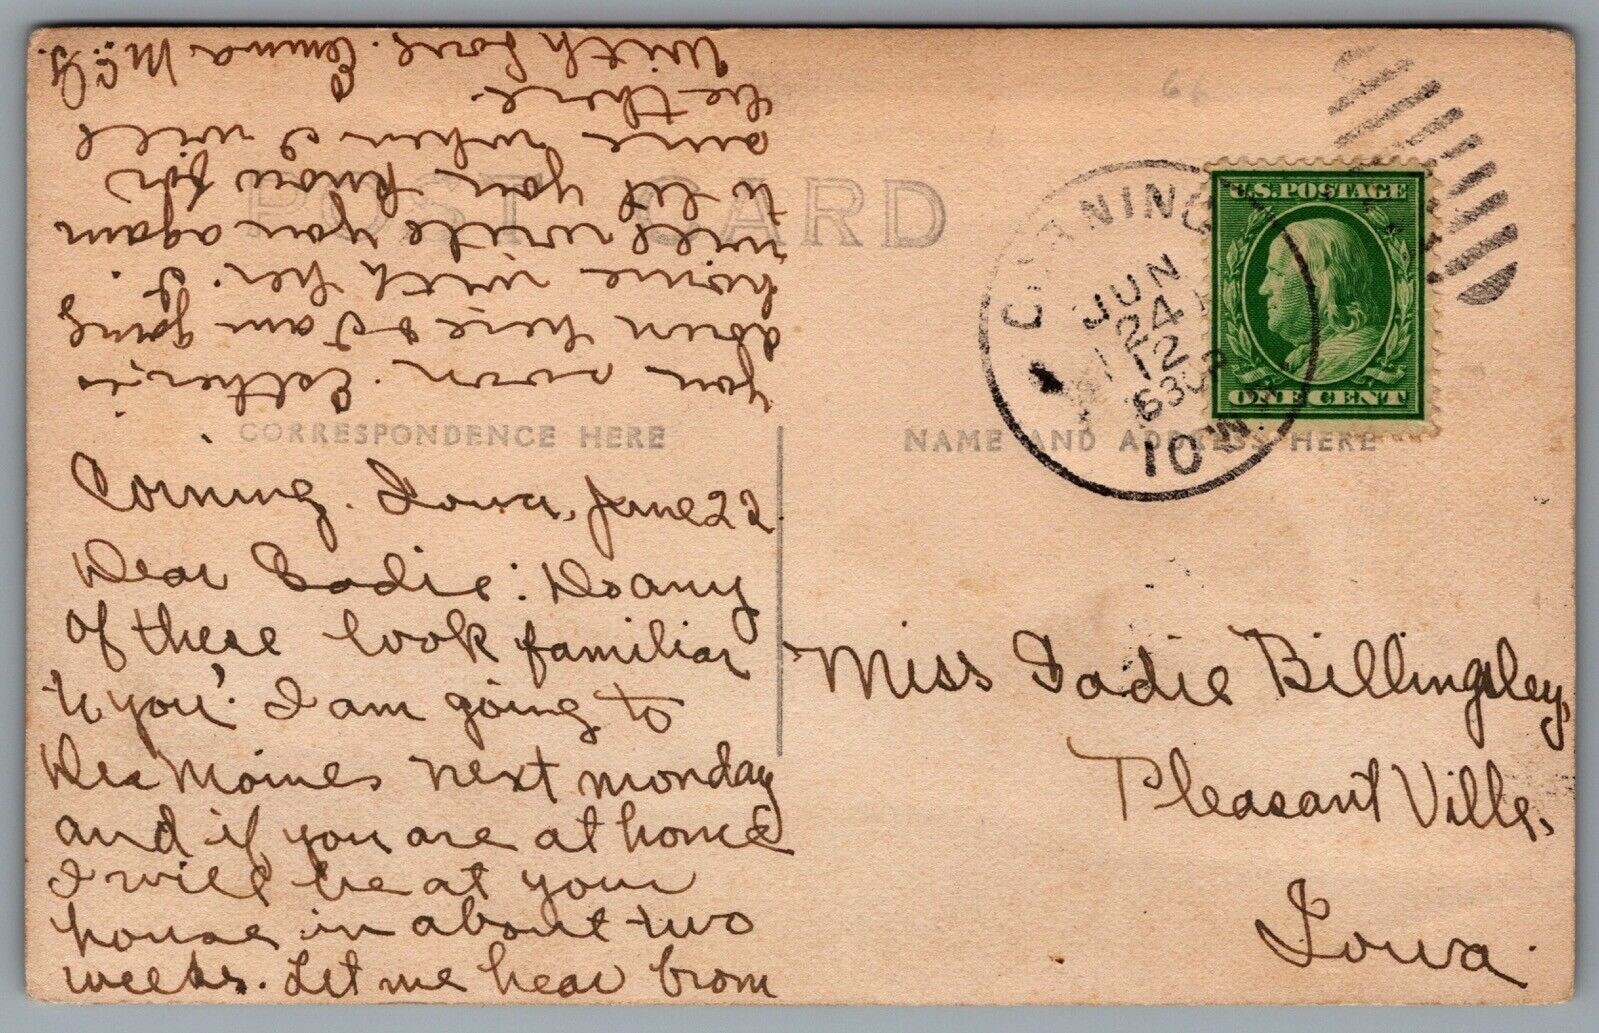 POST CARD
CORRESPONDENCE HERE
NAME AND ADDRESS HERE
Corning. Iowa, June 22
Dear Sadie: Do any
of these look familiar
to you? I am going to
Des Moines next monday
and if you are at home
I will be at your
house in about two
weeks. Let me hear from
you soon. Esther is
down here & I am going
home with her. I
will write you again
to let you know for
sure when I will
be there.
With Love. Emma McCoy.
Miss Sadie Billingsley,
Pleasant Ville,
Iowa.
CORNING
JUN
24
12
630P
10
U.S. POSTAGE
ONE CENT
66